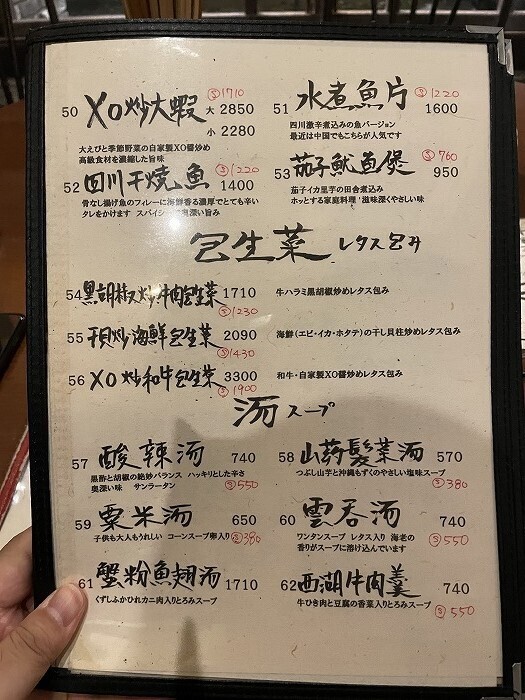 50 XO炒大蝦 Ⓢ1710 大 2850
小 2280
大えびと季節野菜の自家製XO醤炒め
高級食材を濃縮した旨味
51 水煮魚片 Ⓢ1220 1600
四川激辛煮込みの魚バージョン
最近は中国でもこちらが人気です
52 四川干焼魚 Ⓢ1220 1400
骨なし揚げ魚のフィレーに海鮮香る濃厚でとても辛い
タレをかけます スパイシー 奥深い旨み
53 茄子魷魚煲 Ⓢ760 950
茄子イカ里芋の田舎煮込み
ホッとする家庭料理 滋味深くやさしい味
包生菜 レタス包み
54 黒胡椒炒牛肉包生菜 1710 牛ハラミ黒胡椒炒めレタス包み
Ⓢ1230
55 干貝炒海鮮包生菜 2090 海鮮(エビ・イカ・ホタテ)の干し貝柱炒めレタス包み
Ⓢ1430
56 XO炒和牛包生菜 3300 和牛・自家製XO醤炒めレタス包み
Ⓢ1900
湯 スープ
57 酸辣湯 740
黒酢と胡椒の絶妙バランス ハッキリとした辛さ
奥深い味 サンラータン Ⓢ550
58 山药髪菜湯 570
つぶし山芋と沖縄もずくのやさしい塩味スープ
Ⓢ380
59 粟米湯 650
子供も大人もうれしい コーンスープ卵入り Ⓢ380
60 雲呑湯 740
ワンタンスープ レタス入り 海老の
香りがスープに溶け込んでいます Ⓢ550
61 蟹粉魚翅湯 1710
くずしふかひれカニ肉入りとろみスープ
62 西湖牛肉羹 740
牛ひき肉と豆腐の香菜入りとろみスープ Ⓢ550